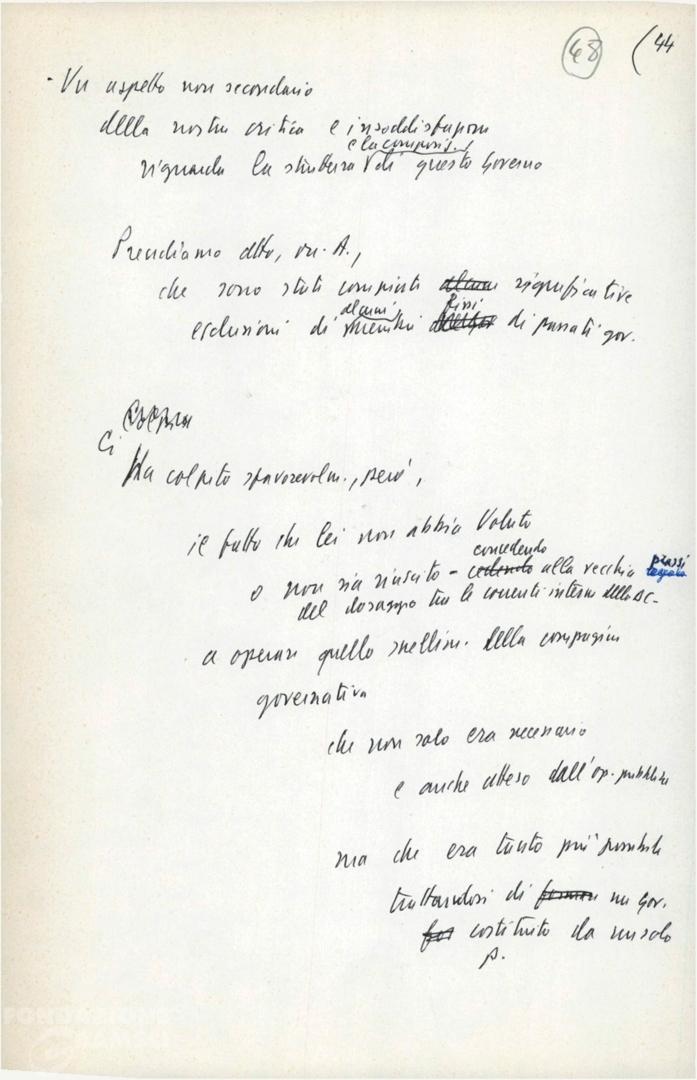 48 (44
- Un aspetto non secondario
della nostra critica e insoddisfazione
e la composiz.
riguarda la struttura V di questo Governo
Prendiamo atto, on. A.,
che sono stati compiuti alcune significative
alcuni fissi
esclusioni di membri di passati gov.
Ci
Ha colpito sfavorevolm., però,
il fatto che lei non abbia voluto
concedendo prassi
o non sia riuscito - cedendo alla vecchia
del dosaggio tra le correnti interne della DC -
a operare quello snellim. della compagine
governativa
che non solo era necessario
e anche atteso dall'op. pubblica
ma che era tanto più possibile
trattandosi di un gov.
costituito da un solo
p.